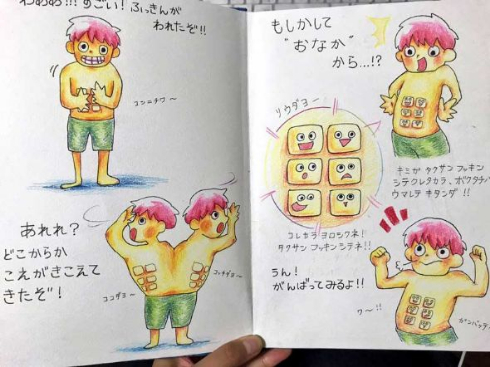 わぁぁ!!! すごい! ふっきんが
われたぞ!!
コンニチワ〜
あれれ?
どこからか
こえがきこえて
きたぞ!
ココダヨ〜
コッチダヨ〜
もしかして
"おなか"
から…!?
ソウダヨー
キミガ タクサン フッキン
シテクレタカラ、ボクタチハ
ウマレテ キタンダ!!
コレカラ ヨロシクネ!
タクサン フッキン シテネ!!
うん!
がんばってみるよ!!
ワー!!
ガンバッテ